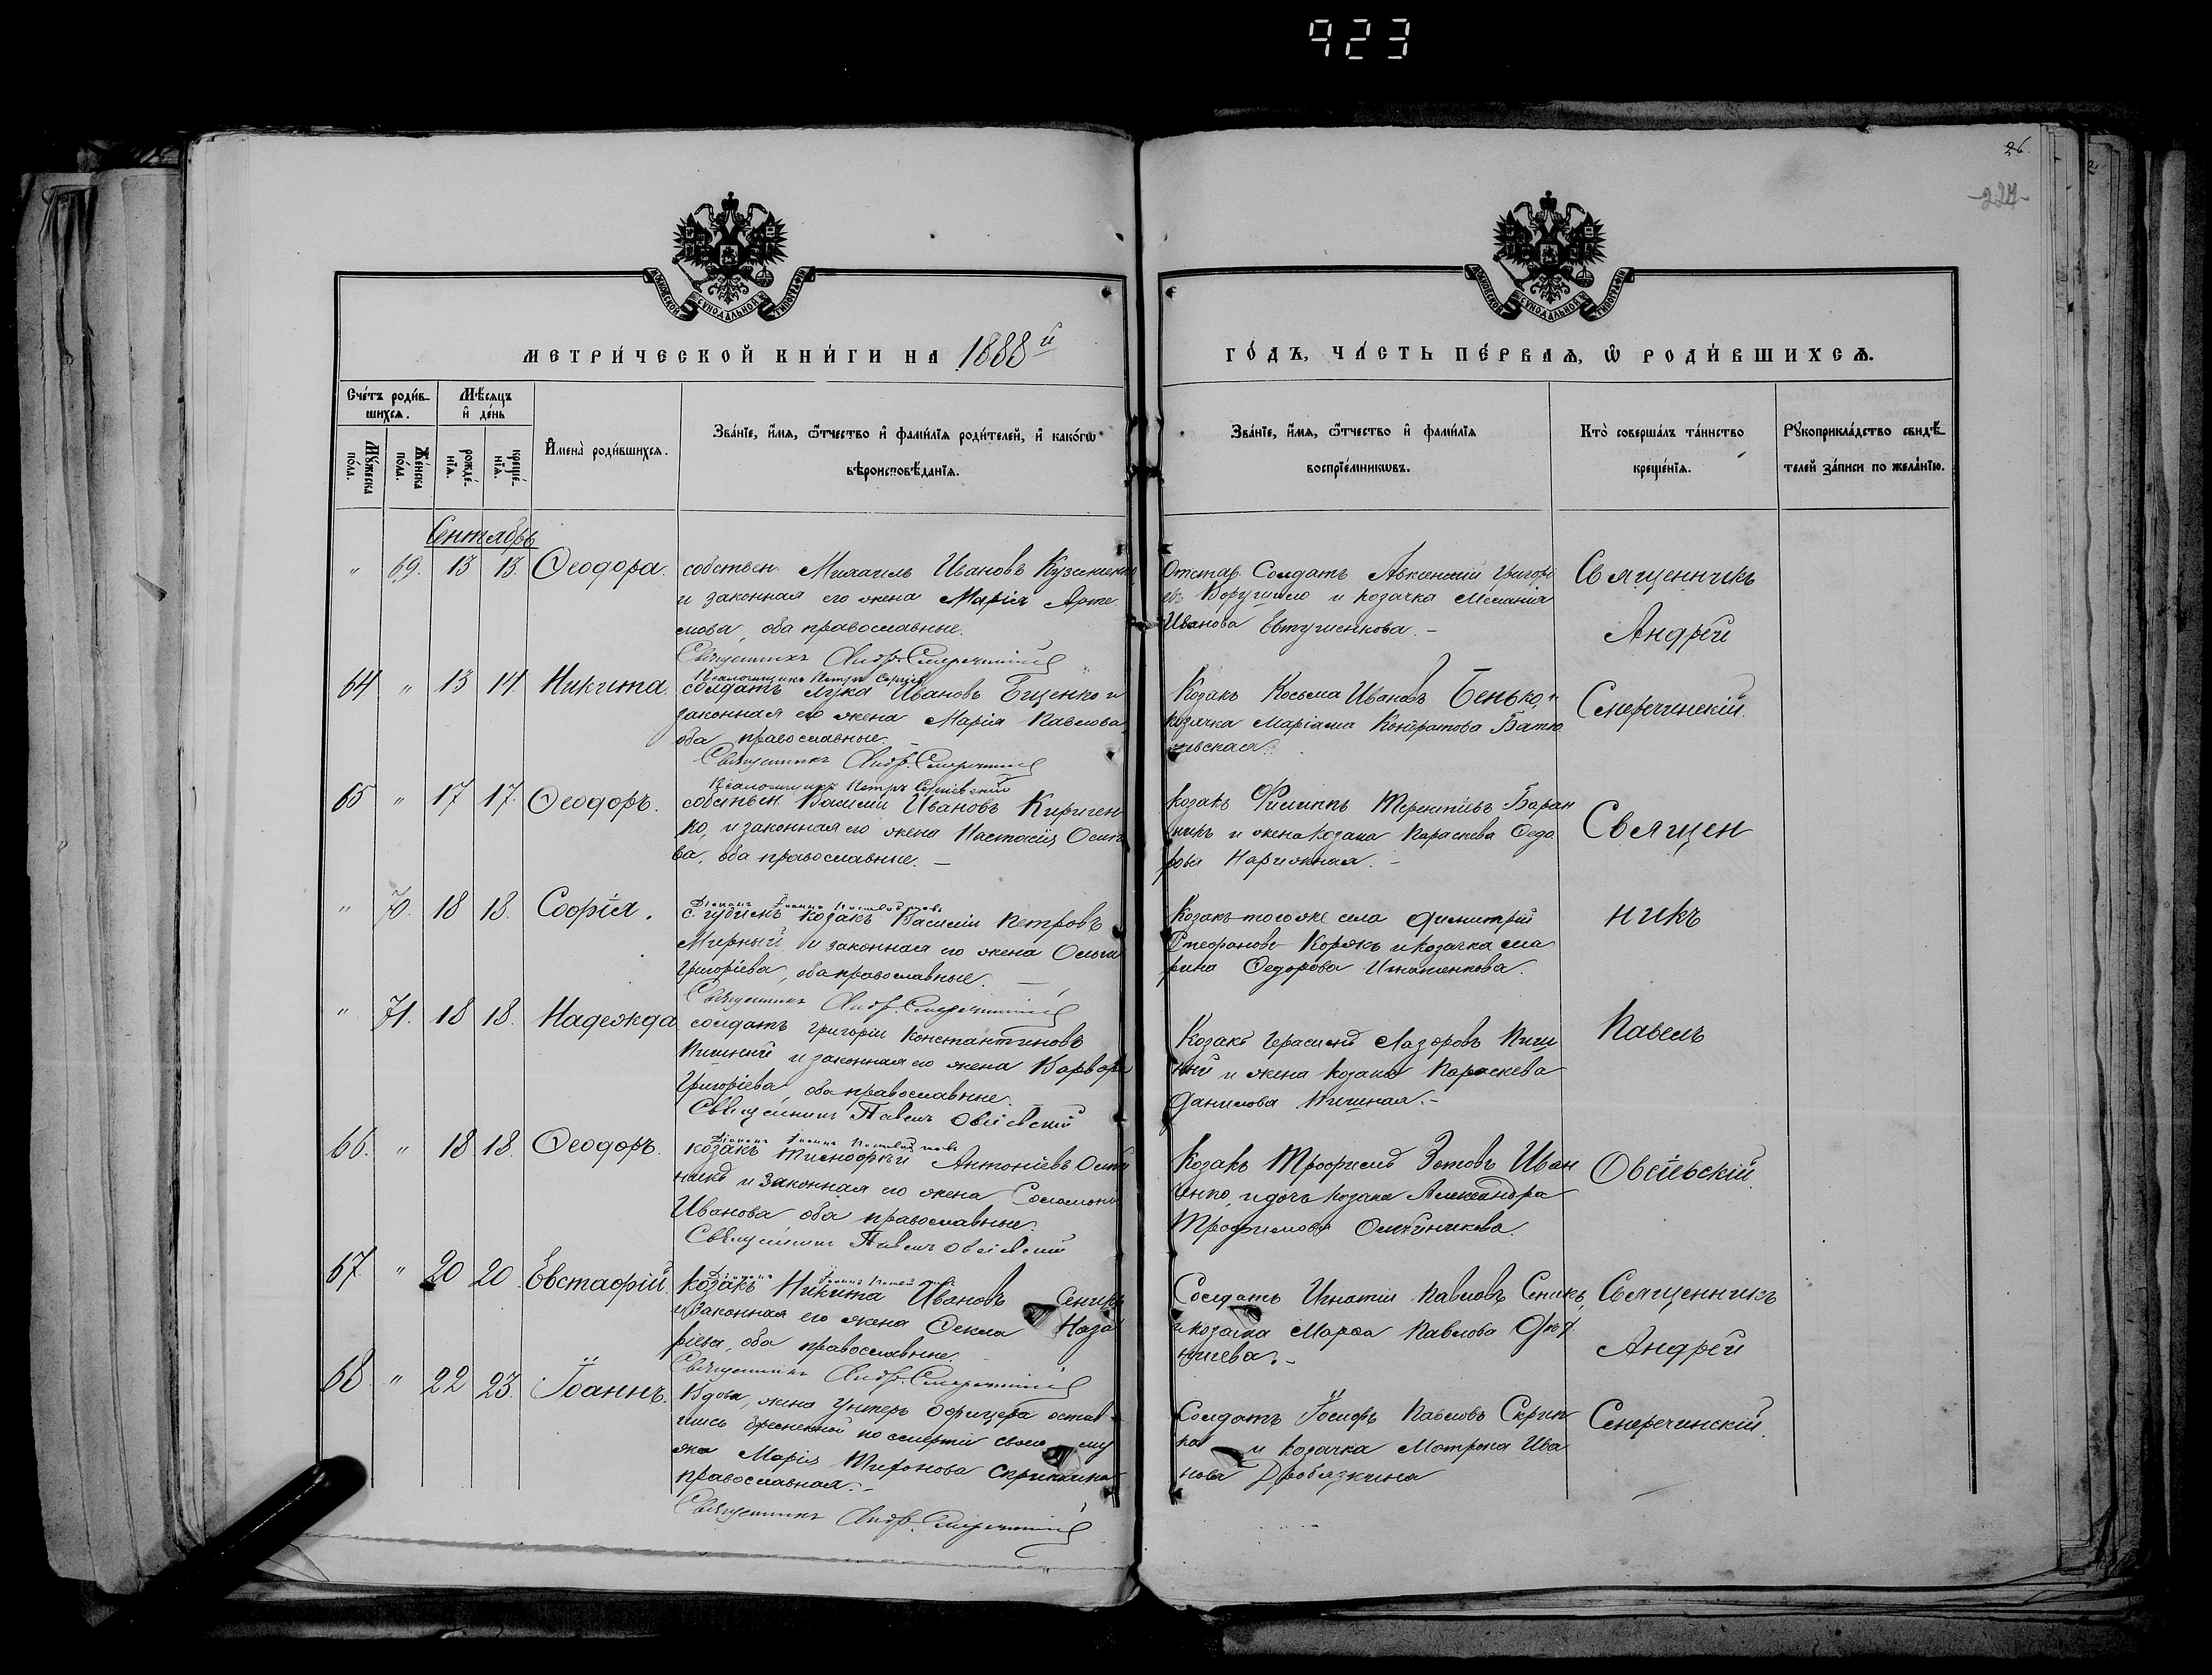 923
26.
224
МОСКОВСКОЙ СѴНОДАЛЬНОЙ ТИПОГРАФІИ
МОСКОВСКОЙ СѴНОДАЛЬНОЙ ТИПОГРАФІИ
МЕТРИ́ЧЕСКОЙ КНИ́ГИ НА 1888й
ГО́ДЪ, ЧА́СТЬ ПЕ́РВАѦ, Ѡ РОДИ́ВШИХСѦ.
Сче́тъ роди́в-
шихсѧ.
Мѣ́сѧцъ
и҆ де́нь
Мꙋ́жеска по́ла.
Же́нска по́ла.
рожде́-
нїѧ.
креще́-
нїѧ.
И҆мена̀ роди́вшихсѧ.
Зва́нїе, и҆́мѧ, ѻ҆́тчество и҆ фами́лїѧ роди́телей, и҆ како́гѡ
вѣроисповѣ́данїѧ.
Зва́нїе, и҆́мѧ, ѻ҆́тчество и҆ фами́лїѧ
воспрїе́мникѡвъ.
Кто̀ соверша́лъ та́инство
креще́нїѧ.
Рꙋкоприкла́дство свидѣ́-
телей за́писи по жела́нїю.
Сентябрь
" 69. 13 13. Ѳеодора. собствен. Михаилъ Ивановъ
и законная его жена Марія Арте
мова, оба православные.
Священникъ Андр. Смеречинскій
Отстав. Солдатъ Авксентій Григорі
евъ и козачка Меланія
Иванова Евтушенкова. –
Священникъ
Андрей
Смеречинскій.
64 " 13 14 Никита. Псаломщикъ Петръ
солдатъ Лука Ивановъ Биценко и
законная его жена Марія Павлова,
оба православные.
Священникъ Андр. Смеречинскій
Козакъ Косьма Ивановъ Бенько, и
козачка Маріама Кондратова
65 " 17 17. Ѳеодоръ. Псаломщикъ Петръ
собствен. Василій Ивановъ Киричен
ко, и законная его жена Настасія Осипо
ва, оба православные. –
Козакъ Филиппъ Терентіевъ Баран
никъ и жена козака Параскева Ѳедо
рова Нарижная. –
Священ
никъ
Павелъ
Овсіевскій.
" 70. 18 18. Софія. Діаконъ Іоаннъ
козакъ Василій Петровъ
Мирный, и законная его жена Ольга
Григоріева, оба православные. –
Священникъ Андр. Смеречинскій
Козакъ того же села Димитрій
Стефановъ Коржъ и козачка Ма
рина Ѳедорова Игнатенкова.
" 71. 18 18. Надежда солдатъ Григорій Константиновъ
и законная его жена Варвара
Григоріева, оба православные.
Священникъ Павелъ Овсіевскій
Козакъ Герасимъ Лазоровъ
и жена козака Параскева
Данилова –
66. " 18 18. Ѳеодоръ. Діаконъ Іоаннъ
козакъ Тимоѳей Антоніевъ
и законная его жена Соломонія
Иванова оба православные.
Священникъ Павелъ Овсіевскій
Козакъ Трофимъ Зотовъ Иван
ченко, и дочь козака Александра
Трофимова
67 " 20 20 Евстафій. Діаконъ Іоаннъ
Козакъ Никита Ивановъ Сеникъ
и законная его жена Ѳекла Наза
ріева, оба православные.
Священникъ Андр. Смеречинскій
Солдатъ Игнатій Павловъ Сеникъ,
и козачка Марѳа Павлова
Священникъ
Андрей
Смеречинскій.
68 " 22 23. Іоаннъ. Вдова, жена унтеръ офицера остав
шись беременной по смерти своего му
жа Марія Тихонова Скрипкина
православная. –
Священникъ Андр. Смеречинскій
Солдатъ Іосифъ Павловъ Скрип
ка и козачка Матрона Ива
нова Дробязкина